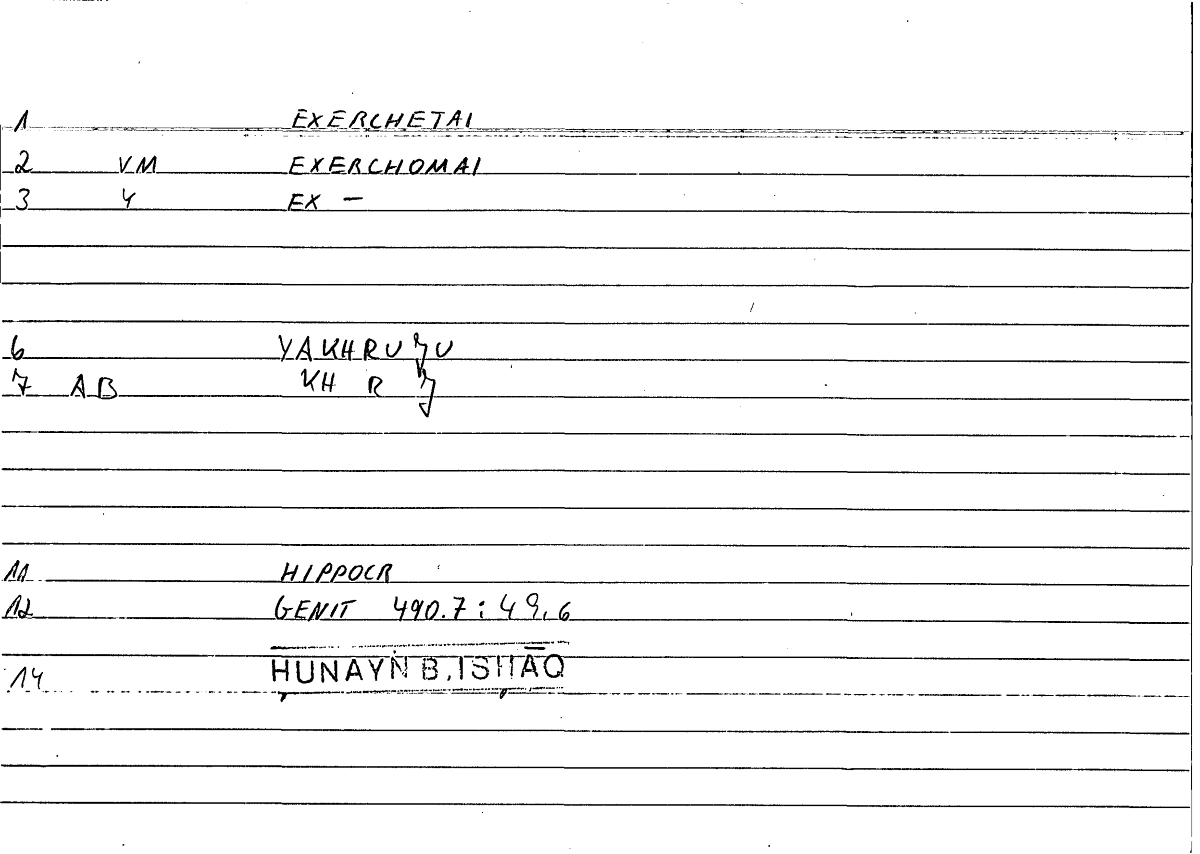 1 EXERCHETAI
2 VM EXERCHOMAI
3 4 EX –
6 YAKHRUǦU
7 AB KH R Ǧ
11 HIPPOCR
12 GENIT 490.7 : 49,6
14 ḤUNAYN B. ISḤĀQ